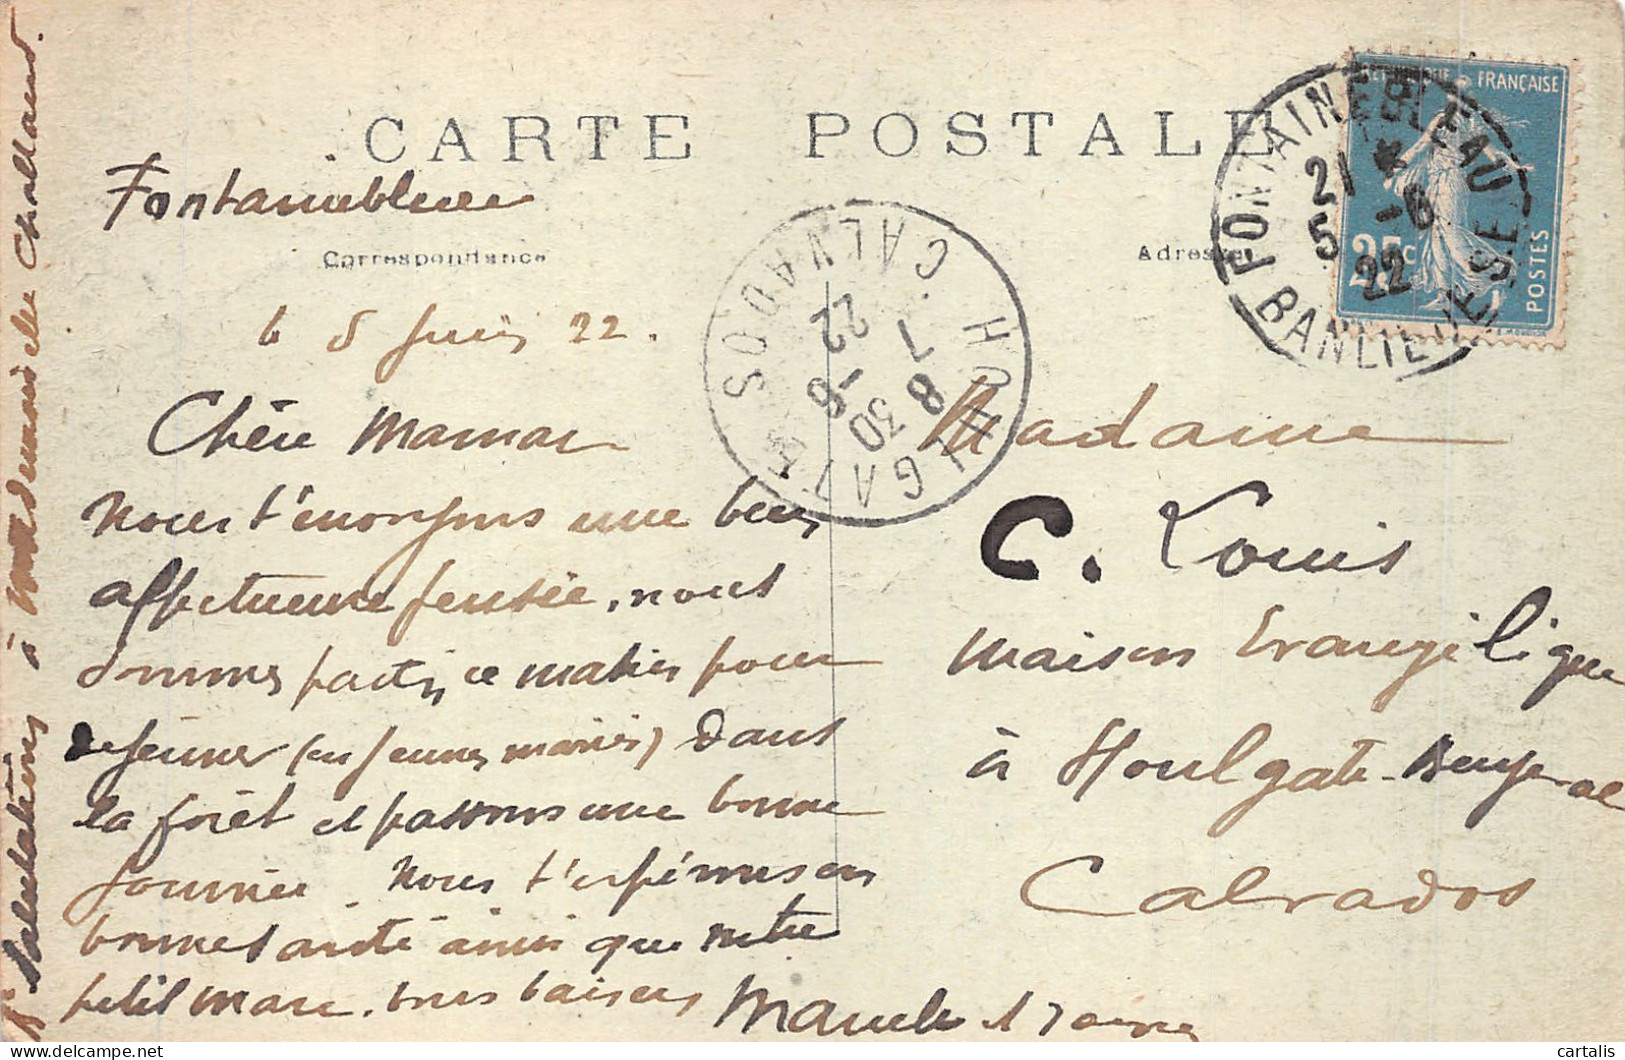 CARTE POSTALE
Fontainebleau
Correspondance
Adresse
le 5 juin 22.
Chère Maman
Nous t'envoyons une bien
affectueuse pensée, nous
sommes partis ce matin pour
déjeuner (en jeunes mariés) dans
la forêt et passons une bonne
journée. Nous t'espérons en
bonne santé ainsi que notre
petit Marc. Bons baisers
Salutations à Mademoiselle Challand.
Madame
C. Louis
Maison Evangélique
à Houlgate-Beuzeval
Calvados
FONTAINEBLEAU
21 *
5 -6
22
BANLIEUE
RÉPUBLIQUE FRANÇAISE
25c
POSTES
HOULGATE
CALVADOS
7 -6
22
8 30
cartalis